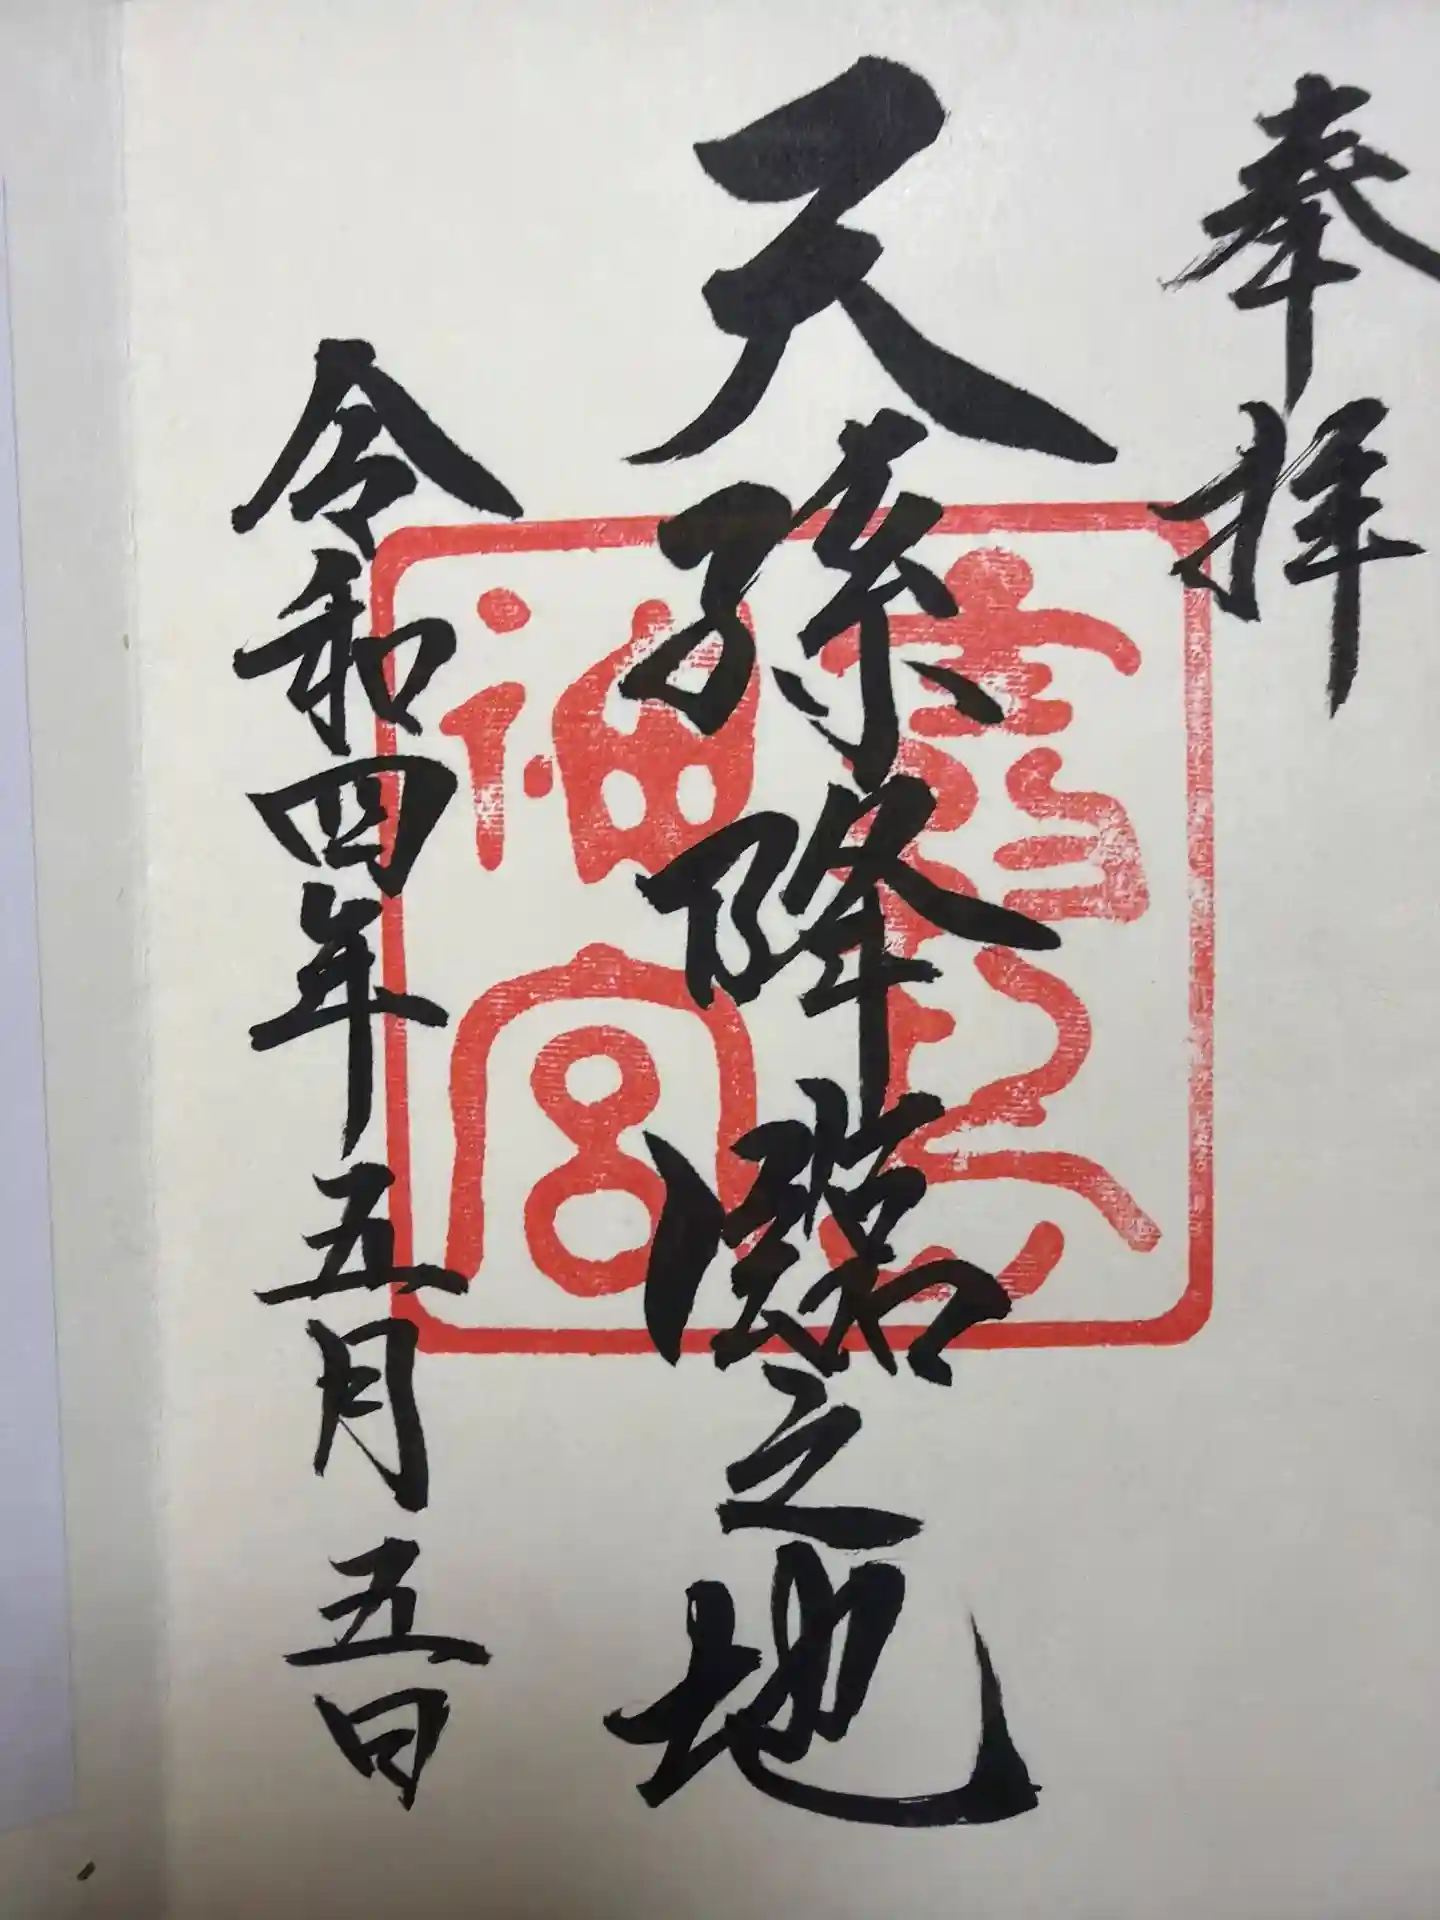 奉拝
天孫降臨之地
神宮
令和四年五月五日